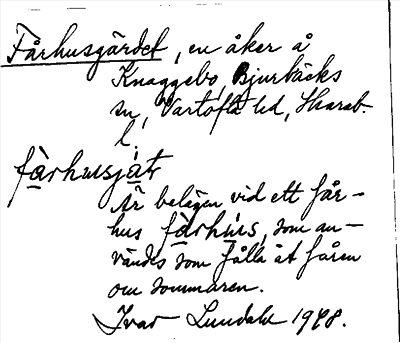 Fårhusgärdet, en åker å
Knaggebo, Bjurbäcks
sn, Vartofta hd, Skarab.
l.
fàrhusjàtr
Är belägen vid ett får-
hus fàrhús, som an-
vändes som fålla åt fåren
om sommaren.
Ivar Lundahl 1948.